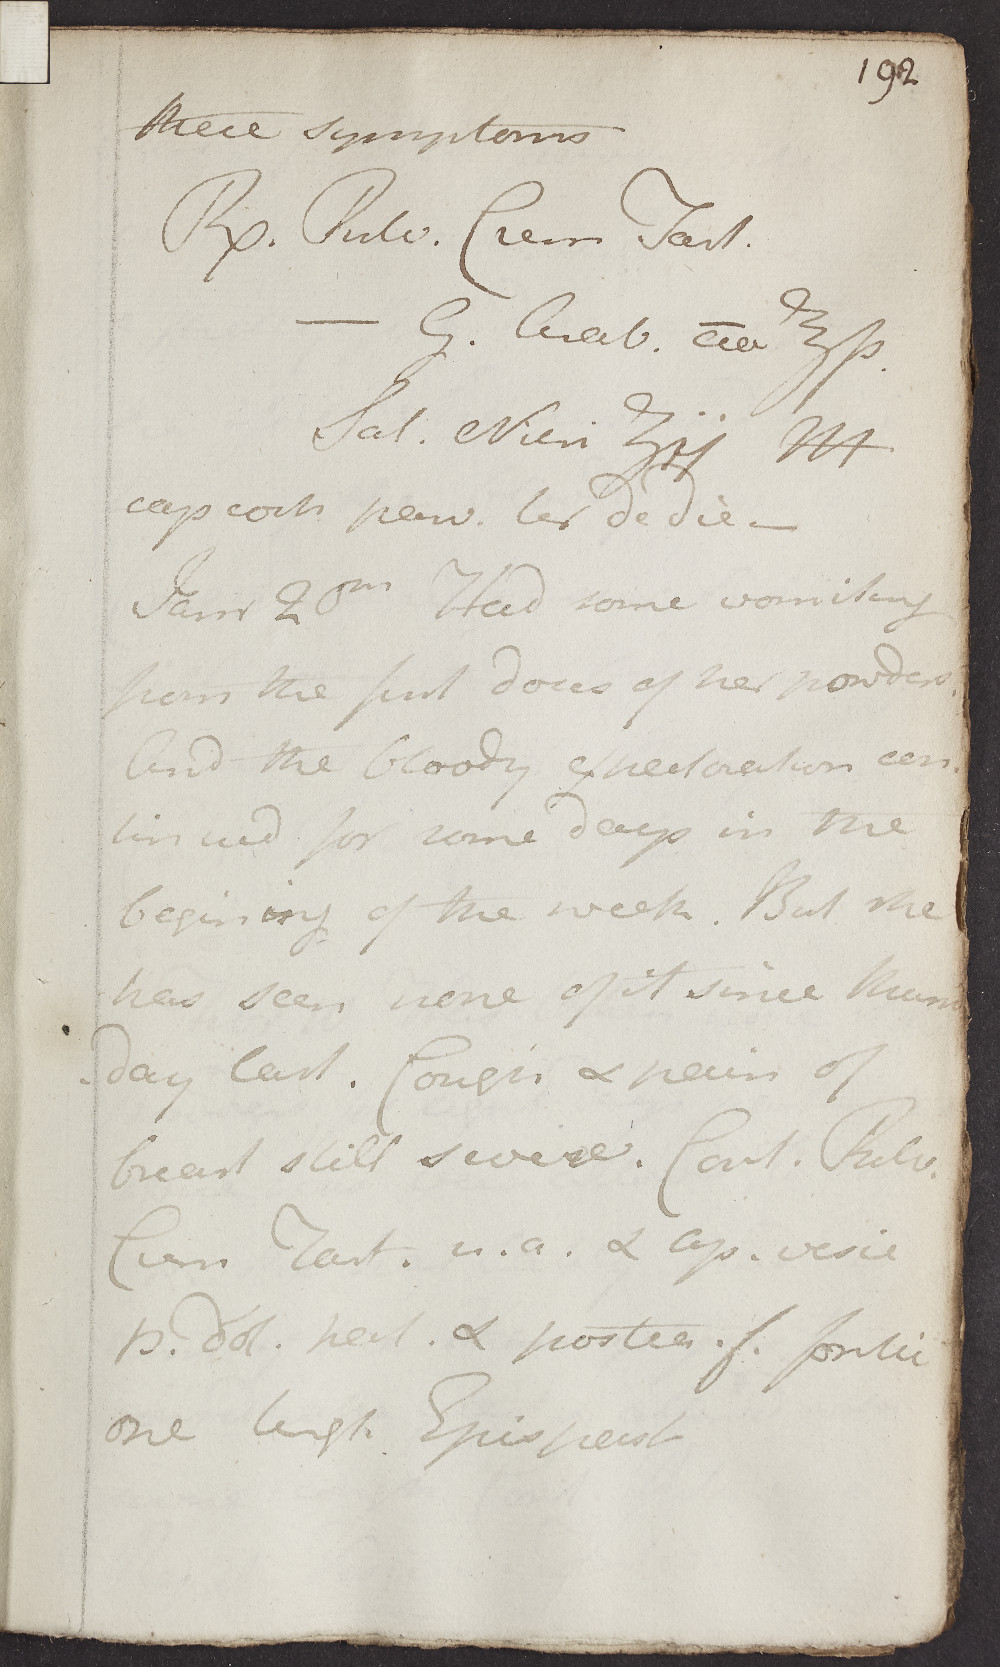 192
these symptoms
Rx. Pulv. Crem Tart.
— G. Arab. āa ℥ſs.
Sal. Nitri ʒij M
cap coch parv. ter de die —
Janr 2om Had some vomiting
from the first doces of her powders.
And the bloody expectoration con-
tinued for some days in the
begining of the week. But she
has seen none of it since thurs
day last. Cough & pain of
breast still severe. Cont. Pulv.
Crem Tart. u.a. & ap. vesic
p. dol. pect. & postea
Ung. Epispast